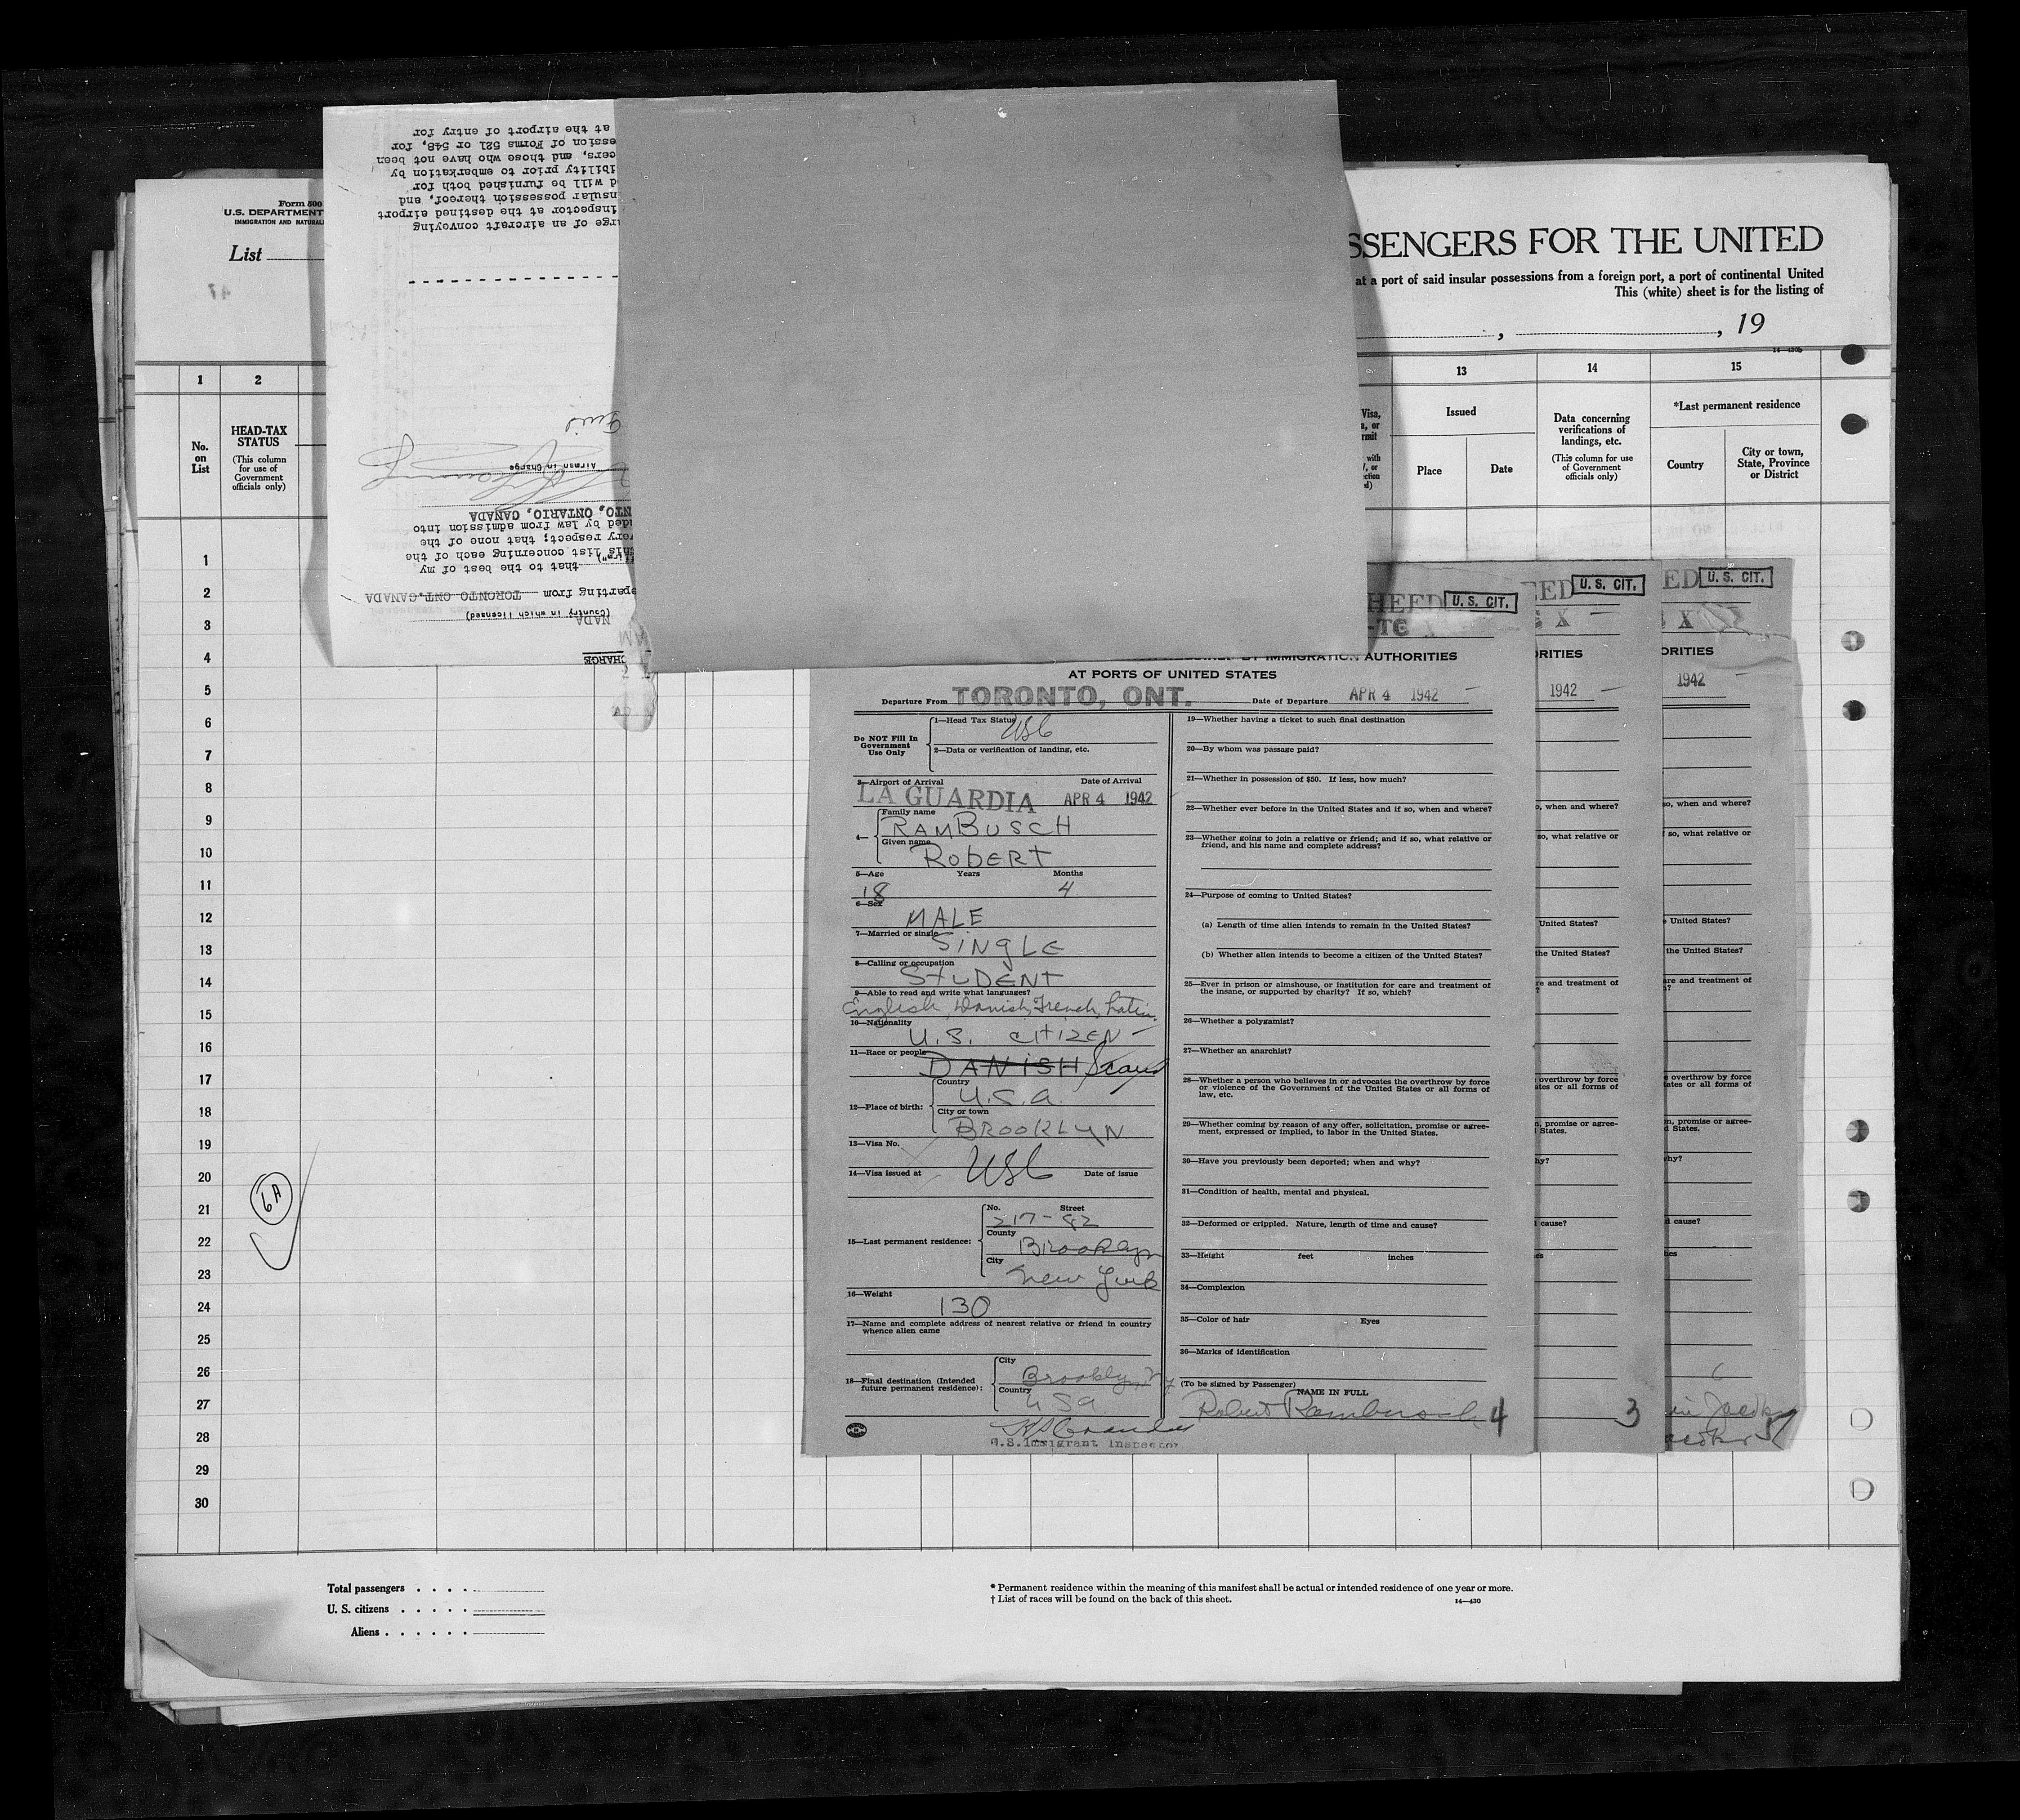 Form 500
U.S. DEPARTMENT
IMMIGRATION AND
List
47
at airport of entry for
ession of Forms 521 or 548, for
cers, and those who have not been
ibility prior to embarkation by
d will be furnished both for
nsular possession thereof, and
inspector at the destined airport
rge of an aircraft conveying
Airman in Charge
NTO, ONTARIO, CANADA
ded by law from admission into
ery respect; that none of the
his list concerning each of the
that to the best of my
parting from TORONTO ONT. CANADA
(Country in which licensed)
NADA
CHARGE
SSENGERS FOR THE UNITED
at a port of said insular possessions from a foreign port, a port of continental United
This (white) sheet is for the listing of
, , 19
1 2 13 14 15
No. on List
HEAD-TAX STATUS
(This column for use of Government officials only)
Visa,
Issued
Place
Date
Data concerning verifications of landings, etc.
(This column for use of Government officials only)
*Last permanent residence
Country
City or town, State, Province or District
1
2
3
4
5
6
7
8
9
10
11
12
13
14
15
16
17
18
19
20
21
22
23
24
25
26
27
28
29
30
6A
HEED U. S. CIT.
EED U. S. CIT.
ED U. S. CIT.
BY IMMIGRATION AUTHORITIES
AT PORTS OF UNITED STATES
Departure From TORONTO, ONT. Date of Departure APR 4 1942
Do NOT Fill In Government Use Only
1—Head Tax Status USC
2—Data or verification of landing, etc.
3—Airport of Arrival Date of Arrival
LA GUARDIA APR 4 1942
4— Family name
RAMBUSCH
Given name
ROBERT
5—Age Years Months
18 4
6—Sex
MALE
7—Married or single
SINGLE
8—Calling or occupation
STUDENT
9—Able to read and write what languages?
English, Danish, French, Latin.
10—Nationality
U.S. CITIZEN
11—Race or people DANISH Scand
12—Place of birth: Country
U.S.A.
City or town
BROOKLYN
13—Visa No.
14—Visa issued at USC Date of issue
15—Last permanent residence: No. Street
217-82
County
Brooklyn
City
New York
16—Weight
130
17—Name and complete address of nearest relative or friend in country whence alien came
18—Final destination (Intended future permanent residence): City
Brooklyn, N.Y
Country
USA
U.S.Immigrant Inspector
19—Whether having a ticket to such final destination
20—By whom was passage paid?
21—Whether in possession of $50. If less, how much?
22—Whether ever before in the United States and if so, when and where?
23—Whether going to join a relative or friend; and if so, what relative or friend, and his name and complete address?
24—Purpose of coming to United States?
(a) Length of time alien intends to remain in the United States?
(b) Whether alien intends to become a citizen of the United States?
25—Ever in prison or almshouse, or institution for care and treatment of the insane, or supported by charity? If so, which?
26—Whether a polygamist?
27—Whether an anarchist?
28—Whether a person who believes in or advocates the overthrow by force or violence of the Government of the United States or all forms of law, etc.
29—Whether coming by reason of any offer, solicitation, promise or agreement, expressed or implied, to labor in the United States.
30—Have you previously been deported; when and why?
31—Condition of health, mental and physical.
32—Deformed or crippled. Nature, length of time and cause?
33—Height feet inches
34—Complexion
35—Color of hair Eyes
36—Marks of identification
(To be signed by Passenger)
NAME IN FULL
Robert Rambusch 4
3
5
Total passengers . . . .
U. S. citizens . . . . .
Aliens . . . . . .
* Permanent residence within the meaning of this manifest shall be actual or intended residence of one year or more.
† List of races will be found on the back of this sheet. 14—430